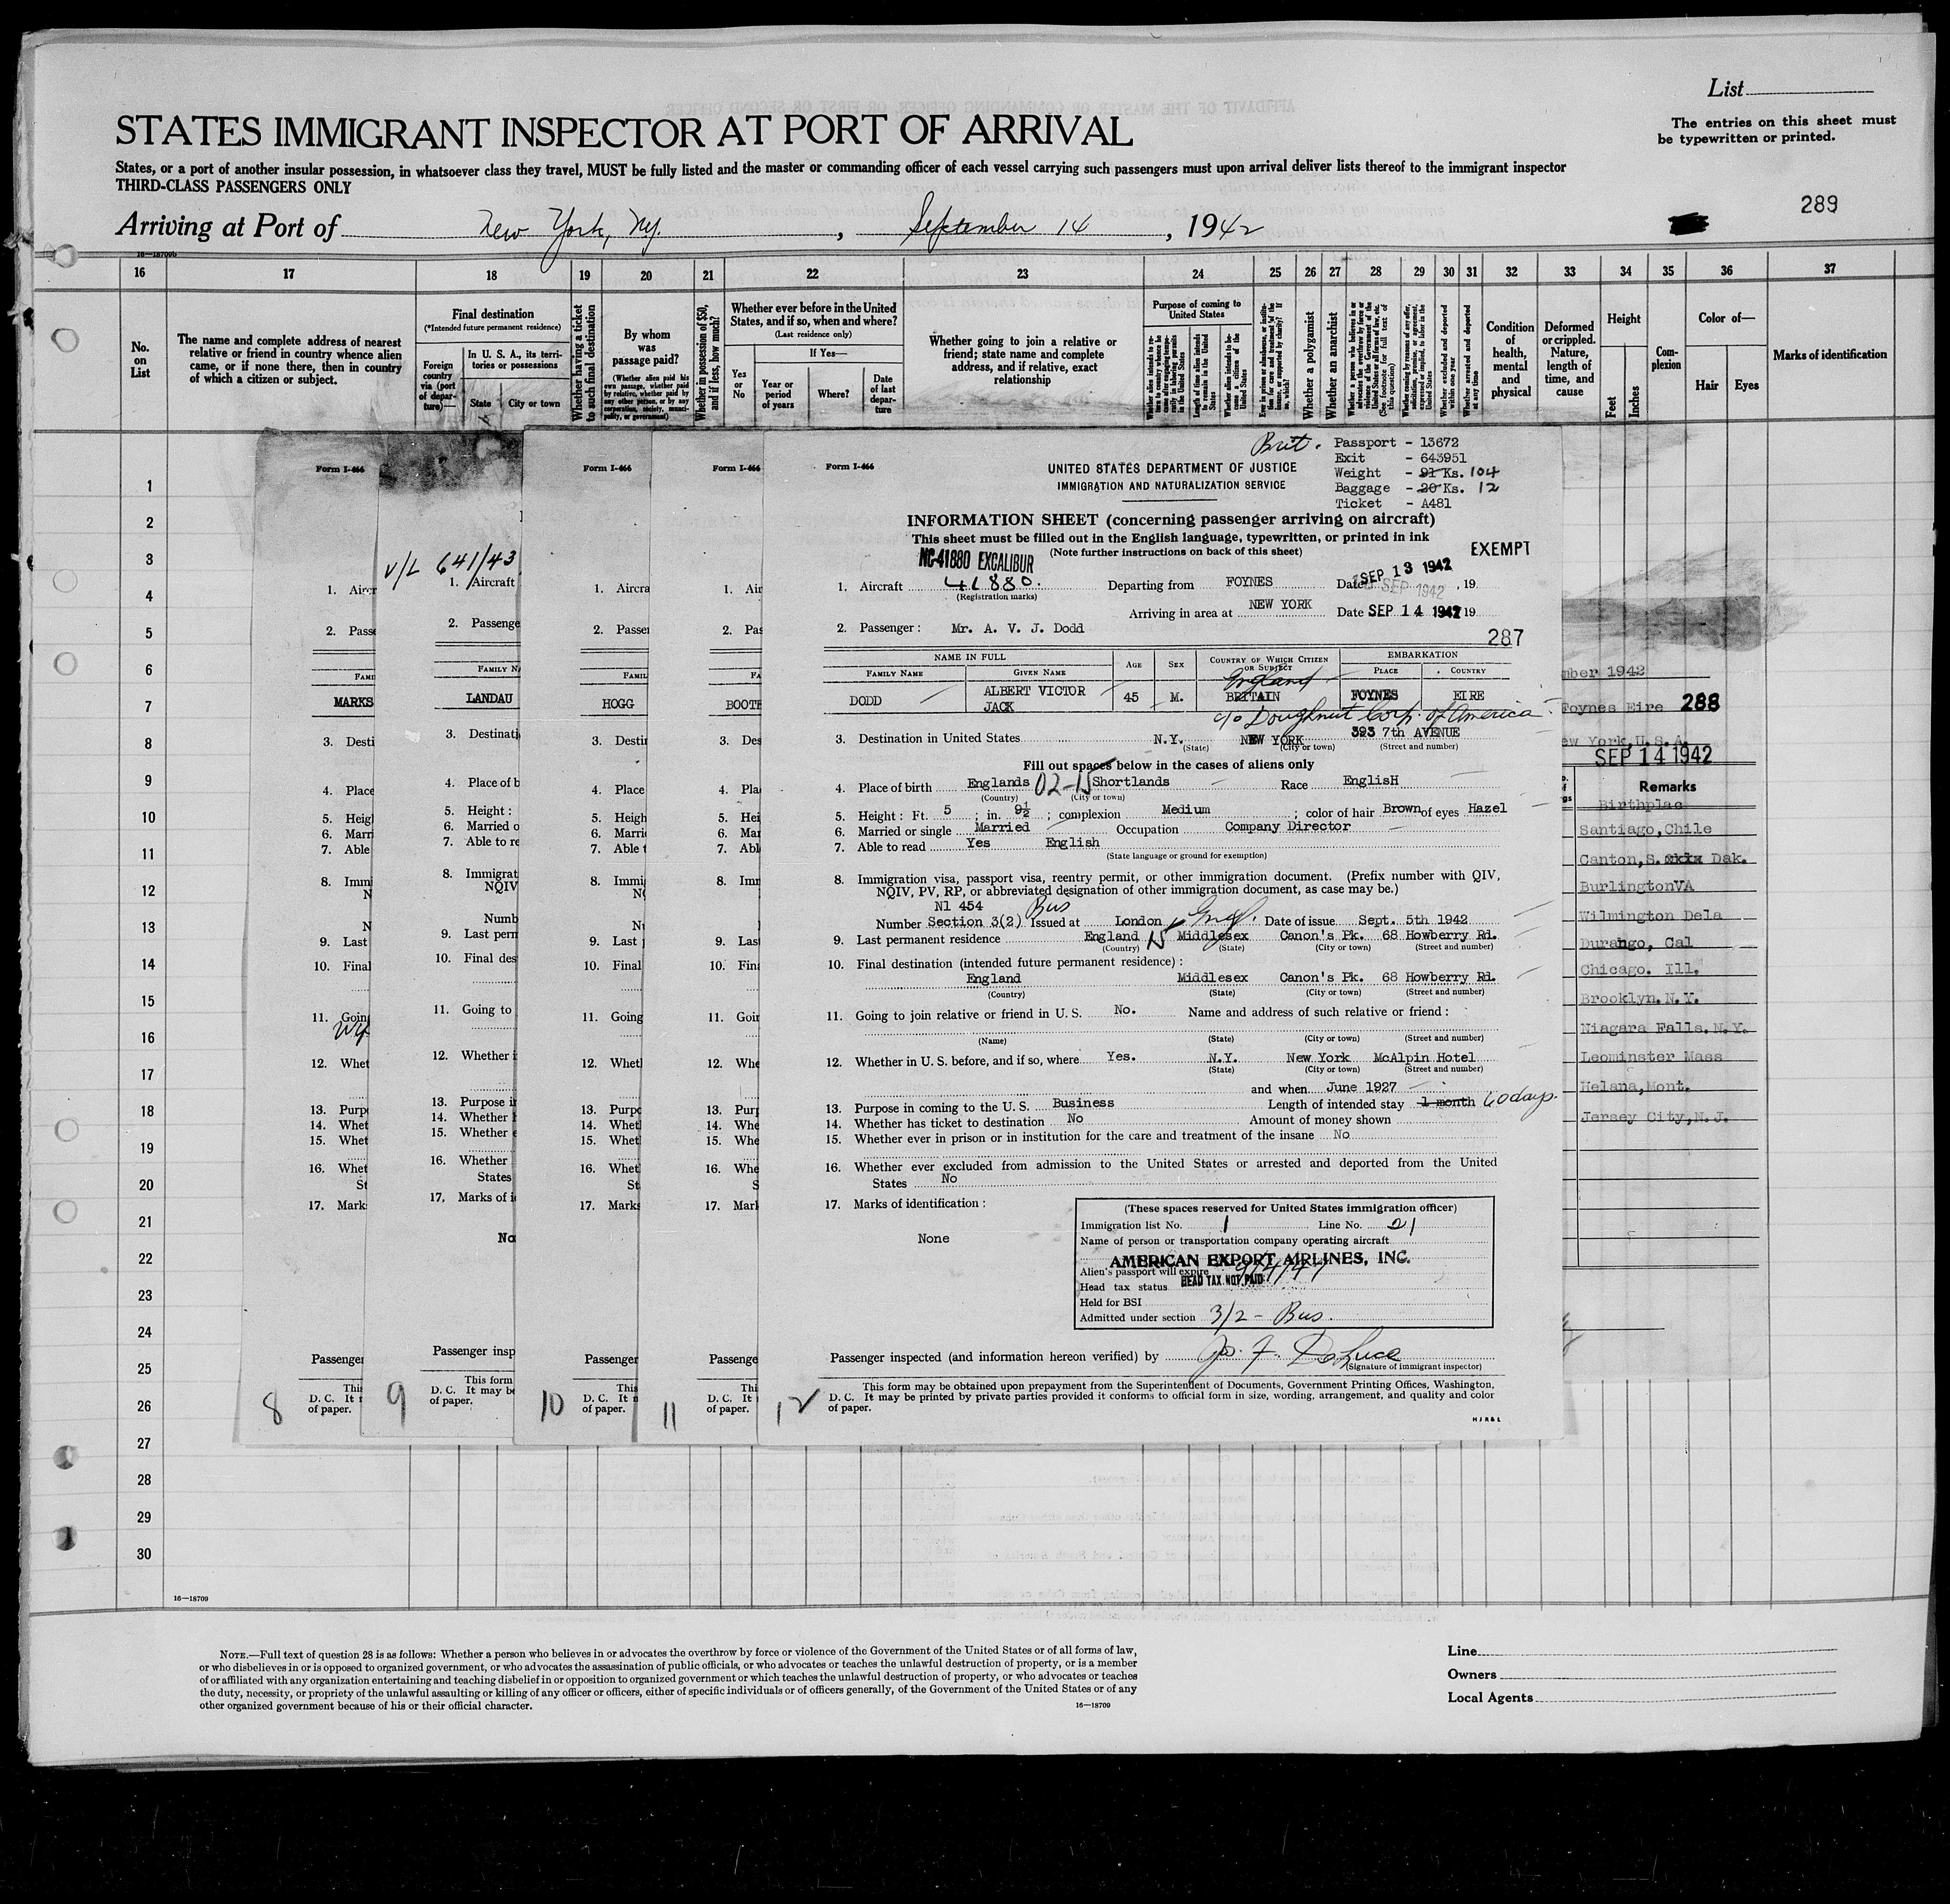 List
STATES IMMIGRANT INSPECTOR AT PORT OF ARRIVAL
The entries on this sheet must
be typewritten or printed.
States, or a port of another insular possession, in whatsoever class they travel, MUST be fully listed and the master or commanding officer of each vessel carrying such passengers must upon arrival deliver lists thereof to the immigrant inspector
THIRD-CLASS PASSENGERS ONLY
289
Arriving at Port of New York, Ny. , September 14 , 1942
16—18709b
16 17 18 19 20 21 22 23 24 25 26 27 28 29 30 31 32 33 34 35 36 37
No. on List
The name and complete address of nearest relative or friend in country whence alien came, or if none there, then in country of which a citizen or subject.
Final destination
(*Intended future permanent residence)
Foreign country via (port of departure)—
In U. S. A., its territories or possessions
State
City or town
Whether having a ticket to such final destination
By whom was passage paid?
(Whether alien paid his own passage, whether paid by relative, whether paid by any other person, or by any corporation, society, municipality, or government)
Whether in possession of $50, and if less, how much?
Whether ever before in the United States, and if so, when and where?
(Last residence only)
Yes or No
If Yes—
Year or period of years
Where?
Date of last departure
Whether going to join a relative or friend; state name and complete address, and if relative, exact relationship
Purpose of coming to United States
Whether a polygamist
Whether an anarchist
Condition of health, mental and physical
Deformed or crippled. Nature, length of time, and cause
Height
Feet
Inches
Complexion
Color of—
Hair
Eyes
Marks of identification
1
2
3
4
5
6
7
8
9
10
11
12
13
14
15
16
17
18
19
20
21
22
23
24
25
26
27
28
29
30
Form I-466
1. Aircr
2. Passe
FAMI
MARKS
3. Desti
4. Place
5. Heig
6. Marri
7. Able
8. Immi
N
N
9. Last
10. Final
11. Going
12. Whet
13. Purp
14. Whet
15. Whet
16. Whet
St
17. Mark
Passenger
This
D. C. It
of paper.
8
V/L 641/43
1. Aircraft
2. Passenge
FAMILY N
LANDAU
3. Destinati
4. Place of b
5. Height :
6. Married o
7. Able to re
8. Immigrat
NQIV
Numb
9. Last perm
10. Final des
11. Going to
12. Whether i
13. Purpose i
14. Whether
15. Whether e
16. Whether
States
17. Marks of i
No
Passenger insp
This form
D. C. It may be
of paper.
9
Form I-466
1. Aircra
2. Passe
FAMIL
HOGG
3. Desti
4. Place
5. Heigh
6. Marri
7. Able t
8. Immi
9. Last
10. Final
11. Going
12. Whet
13. Purpo
14. Whet
15. Whet
16. Whet
St
17. Marks
Passenger
This
D. C. It
of paper.
10
Form I-466
1. Air
2. Pas
FA
BOOTH
3. Des
4. Pla
5. Hei
6. Mar
7. Abl
8. Imr
9. Las
10. Fin
11. Goir
12. Whe
13. Pur
14. Whe
15. Whe
16. Whe
S
17. Mar
Passenge
Thi
D. C. It
of paper.
11
Form I-466
Brit.
Passport - 13672
Exit - 643951
Weight - 91 Ks. 104
Baggage - 20 Ks. 12
Ticket - A481
UNITED STATES DEPARTMENT OF JUSTICE
IMMIGRATION AND NATURALIZATION SERVICE
INFORMATION SHEET (concerning passenger arriving on aircraft)
This sheet must be filled out in the English language, typewritten, or printed in ink
(Note further instructions on back of this sheet)
EXEMPT
NC-41880 EXCALIBUR
1. Aircraft 41880. Departing from FOYNES Date SEP 13 1942 , 19
(Registration marks)
Arriving in area at NEW YORK Date SEP 14 1942 19
2. Passenger : Mr. A. V. J. Dodd
287
NAME IN FULL AGE SEX COUNTRY OF WHICH CITIZEN OR SUBJECT EMBARKATION
FAMILY NAME GIVEN NAME PLACE COUNTRY
England
DODD ALBERT VICTOR JACK 45 M. BRITAIN FOYNES EIRE
c/o Doughnut Corp. of America
3. Destination in United States N.Y. NEW YORK 393 7th AVENUE
(State) (City or town) (Street and number)
Fill out spaces below in the cases of aliens only
4. Place of birth Englands 02-15 Shortlands Race EnglisH
(Country) (City or town)
5. Height : Ft. 5 ; in. 9½ ; complexion Medium ; color of hair Brown of eyes Hazel
6. Married or single Married Occupation Company Director
7. Able to read Yes English
(State language or ground for exemption)
8. Immigration visa, passport visa, reentry permit, or other immigration document. (Prefix number with QIV,
NQIV, PV, RP, or abbreviated designation of other immigration document, as case may be.)
N1 454 Bus
Number Section 3(2) Issued at London Engl. Date of issue Sept. 5th 1942
9. Last permanent residence England 15 Middlesex Canon's Pk. 68 Howberry Rd.
(Country) (State) (City or town) (Street and number)
10. Final destination (intended future permanent residence) :
England Middlesex Canon's Pk. 68 Howberry Rd.
(Country) (State) (City or town) (Street and number)
11. Going to join relative or friend in U. S. No. Name and address of such relative or friend :
(Name) (State) (City or town) (Street and number)
12. Whether in U. S. before, and if so, where Yes. N.Y. New York McAlpin Hotel
(State) (City or town) (Street and number)
and when June 1927
13. Purpose in coming to the U. S. Business Length of intended stay 1 month 60 days.
14. Whether has ticket to destination No Amount of money shown
15. Whether ever in prison or in institution for the care and treatment of the insane No
16. Whether ever excluded from admission to the United States or arrested and deported from the United
States No
17. Marks of identification :
None
(These spaces reserved for United States immigration officer)
Immigration list No. 1 Line No. 21
Name of person or transportation company operating aircraft
AMERICAN EXPORT AIRLINES, INC.
Alien's passport will expire 9/4/47
Head tax status HEAD TAX NOT PAID
Held for BSI
Admitted under section 3/2 - Bus.
Passenger inspected (and information hereon verified) by Jos. F. DeLuca
(Signature of immigrant inspector)
This form may be obtained upon prepayment from the Superintendent of Documents, Government Printing Offices, Washington,
D. C. It may be printed by private parties provided it conforms to official form in size, wording, arrangement, and quality and color
of paper.
12
H J R & L
mber 1942
Foynes Eire 288
ew York, U.S.A.
SEP 14 1942
Remarks
Birthplac
Santiago, Chile
Canton, S. Dak.
Burlington VA
Wilmington Dela
Durango, Cal
Chicago. Ill.
Brooklyn. N.Y.
Niagara Falls. N.Y.
Leominster Mass
Helana, Mont.
Jersey City, N.J.
16—18709
NOTE.—Full text of question 28 is as follows: Whether a person who believes in or advocates the overthrow by force or violence of the Government of the United States or of all forms of law,
or who disbelieves in or is opposed to organized government, or who advocates the assassination of public officials, or who advocates or teaches the unlawful destruction of property, or is a member
of or affiliated with any organization entertaining and teaching disbelief in or opposition to organized government or which teaches the unlawful destruction of property, or who advocates or teaches
the duty, necessity, or propriety of the unlawful assaulting or killing of any officer or officers, either of specific individuals or of officers generally, of the Government of the United States or of any
other organized government because of his or their official character.
16—18709
Line
Owners
Local Agents